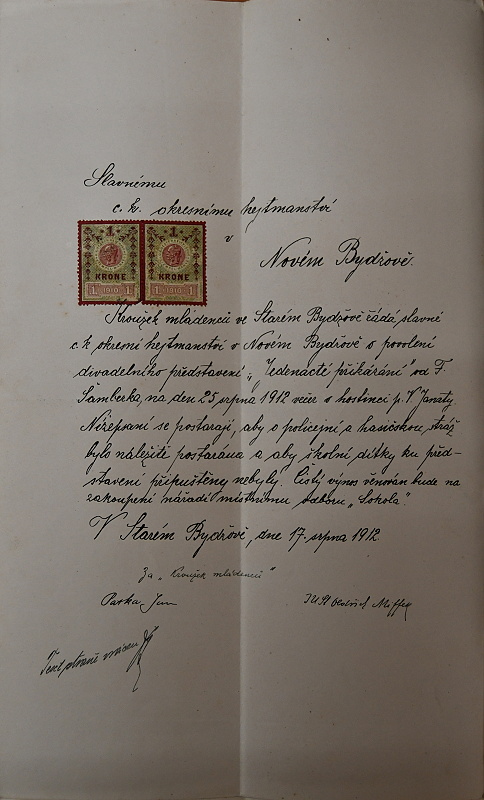 Slavnému
c. k. okresnímu hejtmanství
v
Novém Bydžově.
1
KRONE
1 1910 1
1
KRONE
1 1910 1
Kroužek mládenců ve Starém Bydžově žádá slavné
c. k. okresní hejtmanství v Novém Bydžově o povolení
divadelního představení: „Jedenácté přikázání" od F.
Šamberka, na den 25 srpna 1912 večer v hostinci p. V. Janaty.
Nížepsaní se postarají, aby o policejní a hasičskou stráž
bylo náležitě postaráno a aby školní dítky ku před-
stavení připuštěny nebyly. Čistý výnos věnován bude na
zakoupení nářadí místnímu odboru „Sokola".
V Starém Bydžově, dne 17. srpna 1912
Za „Kroužek mládenců"
Jan
Oldřich